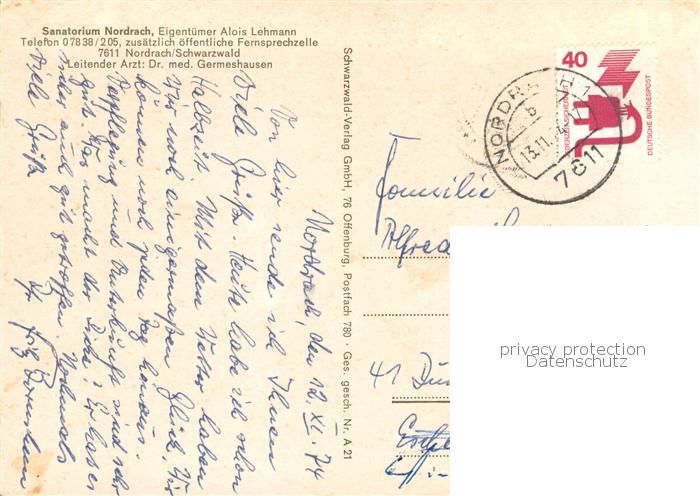 Sanatorium Nordrach, Eigentümer Alois Lehmann
Telefon 07838/205, zusätzlich öffentliche Fernsprechzelle
7611 Nordrach/Schwarzwald
Leitender Arzt: Dr. med. Germeshausen
Nordrach, den 12. XI. 74
Von hier sende ich Ihnen
Viele Grüße. Heute habe ich schon
Halbzeit. Mit dem Wetter haben
wir noch einigermaßen Glück. Wir
können noch jeden Tag heraus.
Verpflegung und Unterkunft sind sehr
gut. Was macht der Dicke? Er hat es
auch gut getroffen. Nochmals
Viele Grüße
Ihr
Schwarzwald-Verlag GmbH, 76 Offenburg, Postfach 780 · Ges. gesch. Nr. A 21
40
JEDERZEIT SICHERHEIT
DEUTSCHE BUNDESPOST
NORDRACH 1
b
13.11.
7611
Familie
Alfred
41
privacy protection
Datenschutz